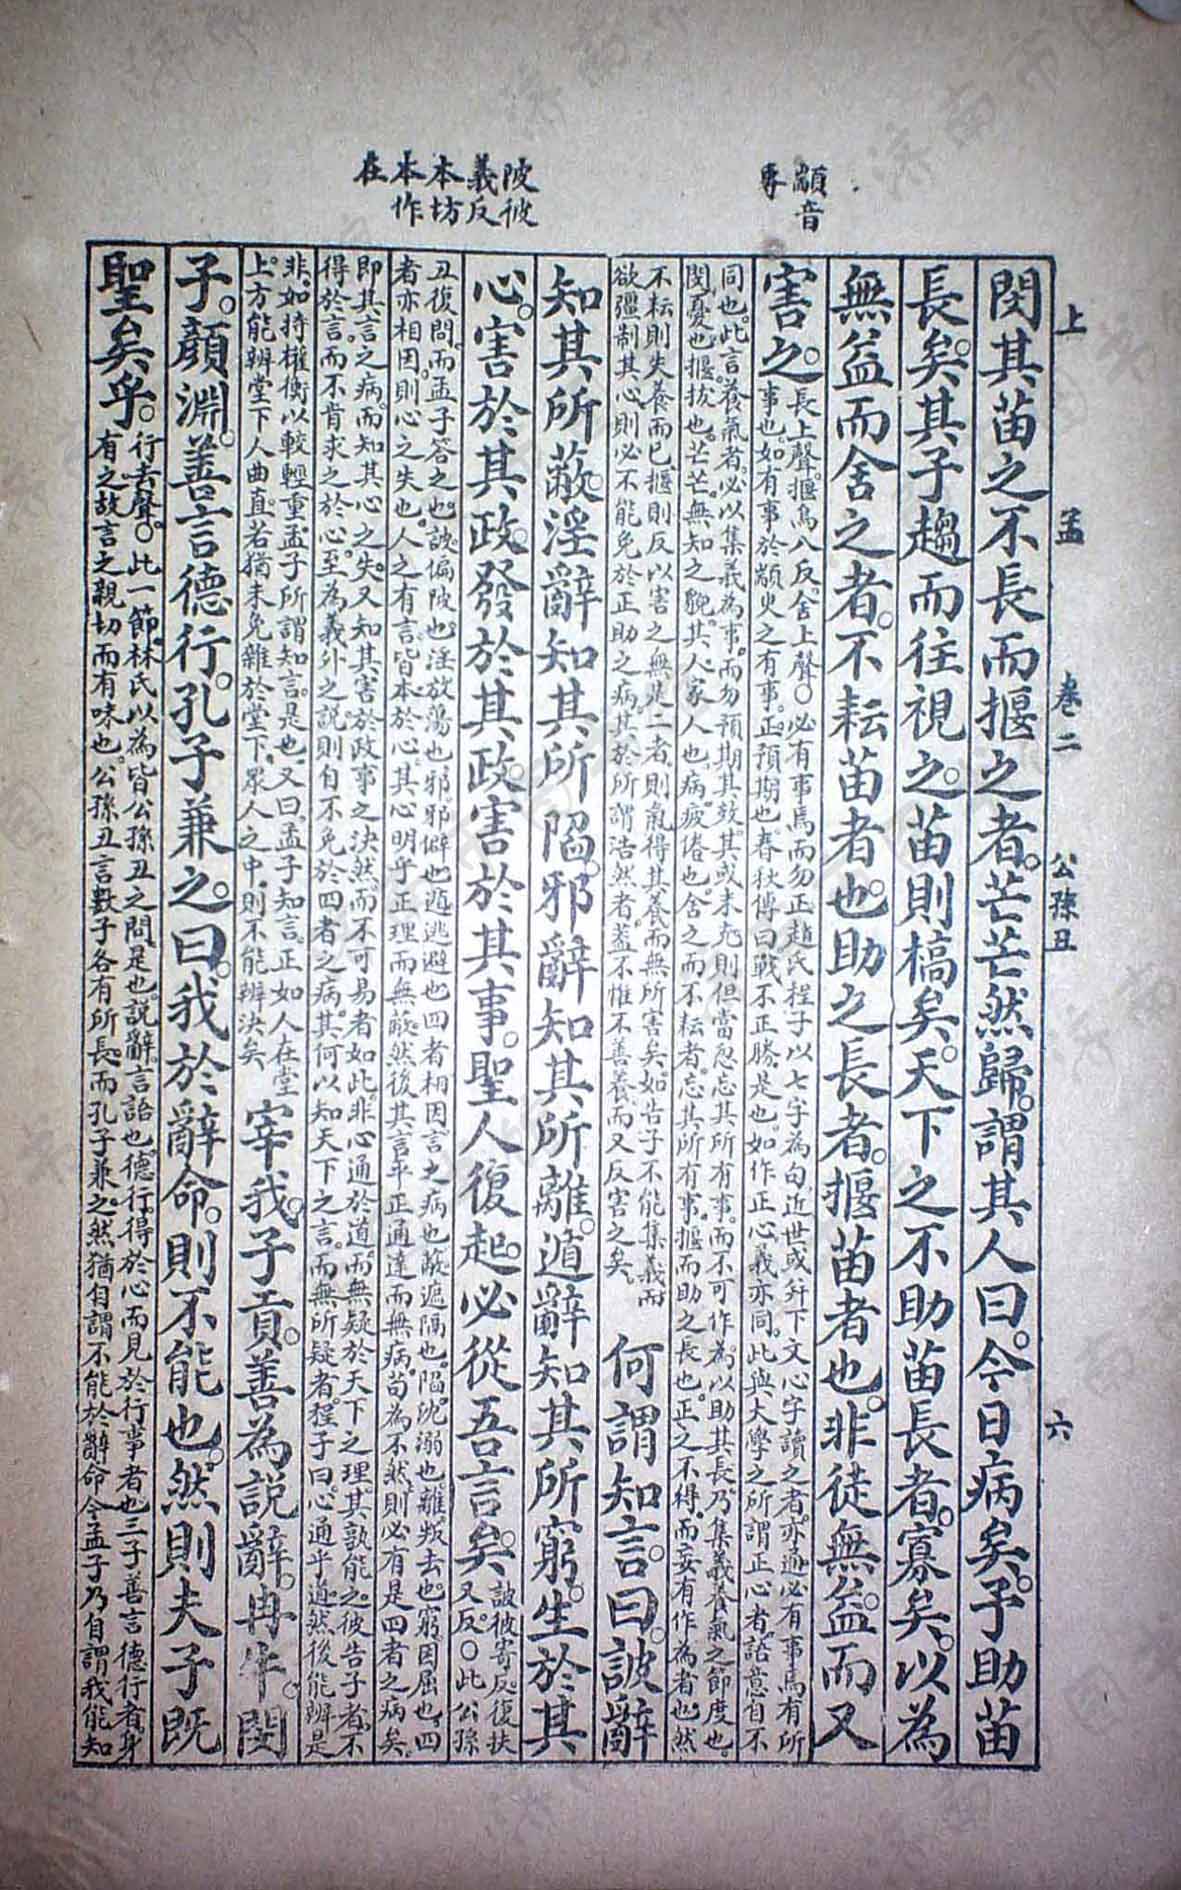 顓音
專
陂彼
義反
本坊
本作
在
上 孟 卷二 公孫丑 六
閔其苗之不長而揠之者。芒芒然歸。謂其人曰。今日病矣。予助苗
長矣。其子趨而往視之。苗則槁矣。天下之不助苗長者。寡矣。以為
無益而舍之者。不耘苗者也。助之長者。揠苗者也。非徒無益。而又
害之。
長上聲。揠烏八反。舍上聲○必有事焉而勿正。趙氏程子以七字為句。近世或并下文心字讀之者。亦通。必有事焉有所
事也。如有事於顓臾之有事。正。預期也。春秋傳曰戰不正勝是也。如作正心義亦同。此與大學之所謂正心者。語意自不
同也。此言養氣者。必以集義為事。而勿預期其效。其或未充。則但當勿忘其所有事。而不可作為以助其長。乃集義養氣之節度也。
閔。憂也。揠。拔也。芒芒。無知之貌。其人。家人也。病。疲倦也。舍之而不耘者。忘其所有事。揠而助之長也。正之不得。而妄有作為者也。然
不耘則失養而已。揠則反以害之。無是二者。則氣得其養而無所害矣。如告子不能集義而
欲彊制其心。則必不能免於正助之病。其於所謂浩然者。蓋不惟不善養。而又反害之矣。
何謂知言。曰。詖辭
知其所蔽。淫辭知其所陷。邪辭知其所離。遁辭知其所窮。生於其
心。害於其政。發於其政。害於其事。聖人復起。必從吾言矣。
詖彼寄反。復扶
又反。○此公孫
丑復問。而孟子答之也。詖。偏陂也。淫。放蕩也。邪。邪僻也。遁。逃避也。四者相因。言之病也。蔽。遮隔也。陷。沈溺也。離。叛去也。窮。困屈也。四
者亦相因。則心之失也。人之有言。皆本於心。其心明乎正理而無蔽。然後其言平正通達而無病。苟為不然。則必有是四者之病矣。
即其言之病。而知其心之失。又知其害於政事之決然而不可易者如此。非心通於道。而無疑於天下之理。其孰能之。彼告子者。不
得於言。而不肯求之於心。至為義外之說。則自不免於四者之病。其何以知天下之言。而無所疑者。程子曰。心通乎道。然後能辨是
非。如持權衡以較輕重。孟子所謂知言。是也。又曰。孟子知言。正如人在堂
上。方能辨堂下人曲直。若猶未免雜於堂下眾人之中。則不能辨決矣
宰我。子貢。善為說辭。冉牛。閔
子。顏淵。善言德行。孔子兼之。曰。我於辭命。則不能也。然則夫子既
聖矣乎。
行去聲。○此一節。林氏以為皆公孫丑之問。是也。說辭。言語也。德行。得於心而見於行事者也。三子善言德行者。身
有之。故言之親切而有味也。公孫丑言數子各有所長。而孔子兼之。然猶自謂不能於辭命。今孟子乃自謂我能知